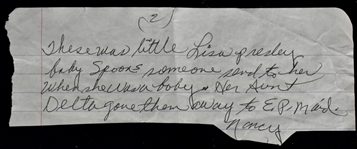 (2)
These was little Lisa presley
baby Spoons someone send to her
when she was a baby. Her Aunt
Delta gave then away to E.P. maid.
Nancy